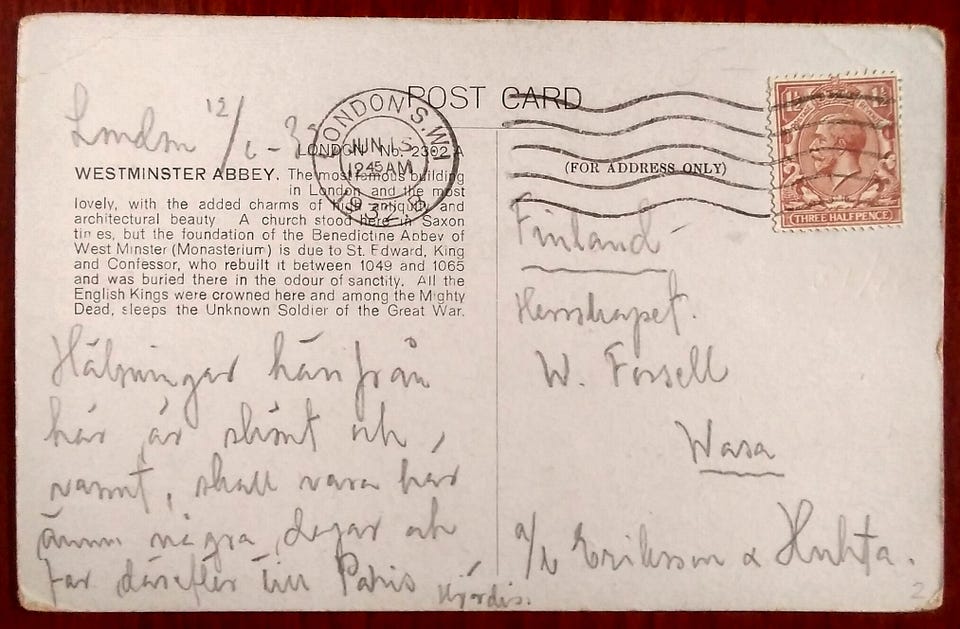 POST CARD
London 12/6 - 32
LONDON S.W.1
JUN 13
12 45 AM
1932
LONDON. No. 2302 A
WESTMINSTER ABBEY. The most famous building
in London and the most
lovely, with the added charms of high antiquity and
architectural beauty A church stood here in Saxon
times, but the foundation of the Benedictine Abbey of
West Minster (Monasterium) is due to St. Edward, King
and Confessor, who rebuilt it between 1049 and 1065
and was buried there in the odour of sanctity. All the
English Kings were crowned here and among the Mighty
Dead, sleeps the Unknown Soldier of the Great War.
Hälsningar härifrån
här är skönt och
varmt, skall vara här
ännu några dagar och
far därefter till Paris
Hjördis.
(FOR ADDRESS ONLY)
1½ 1½
THREE HALFPENCE
Finland
Herrskapet.
W. Forsell
Wasa
a/b Eriksson & Huhta.